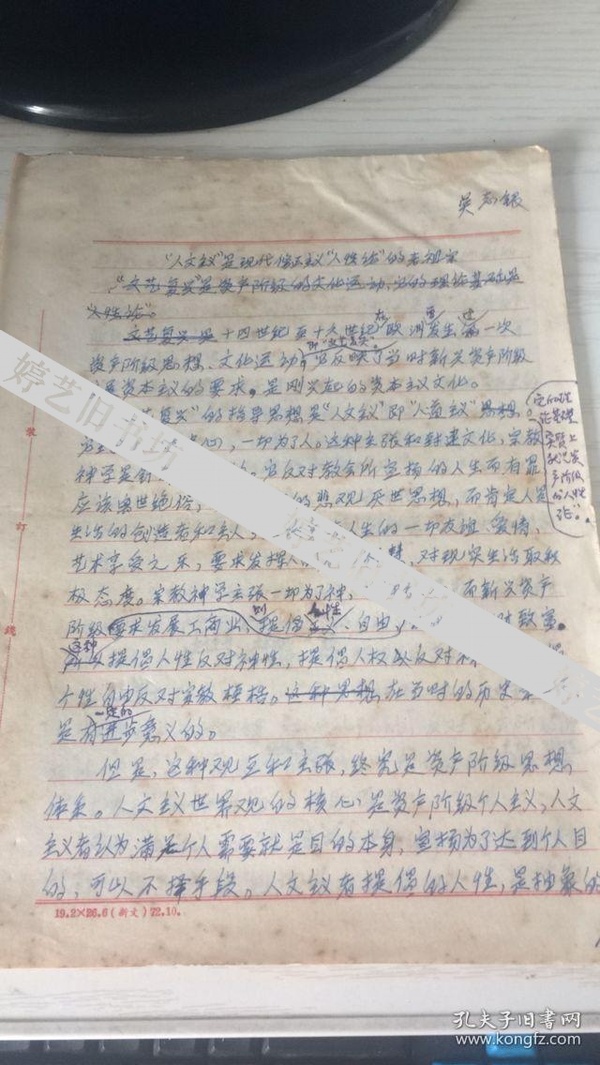 吴志银
"人文主义"是现代修正主义"人性论"的老祖宗
"文艺复兴"是资产阶级的文化运动,它的理论基础是
"人性论"。
文艺复兴是十四世纪至十六世纪在欧洲曾发生过一次
即"文艺复兴"。
资产阶级思想、文化运动,它反映了当时新兴资产阶级
资本主义的要求。是刚兴起的资本主义文化。
艺复兴"的指导思想是"人文主义"即"人道主义"思想。
它的理论基础实质上就是资产阶级的人性论"。
心,一切为了人。这种主张和封建文化、宗教
神学是针 的。它反对教会所宣扬的人生而有罪
应该禁世绝俗, 的悲观厌世思想,而肯定人是
生活的创造者和主人, 人生的一切友谊、爱情,
艺术享受之乐,要求发挥人 对现实生活取积
极态度。宗教神学主张一切为了神, 而新兴资产
阶级要求发展工商业、提倡 个性 自由 财致富。
这种
提倡人性反对神性,提倡人权以反对
个性自由反对宗教桎梏。这种思想,在当时的历史
一定的
是有进步意义的。
但是,这种观点和主张,终究是资产阶级思想
体系。人文主义世界观的核心是资产阶级个人主义,人文
主义者认为满足个人需要就是目的本身,宣扬为了达到个人目
的,可以不择手段。人文主义者提倡的人性,是抽象的
装
订
线
19.2×26.6(新文)72.10.
婷艺旧书坊
孔夫子旧书网
www.kongfz.com